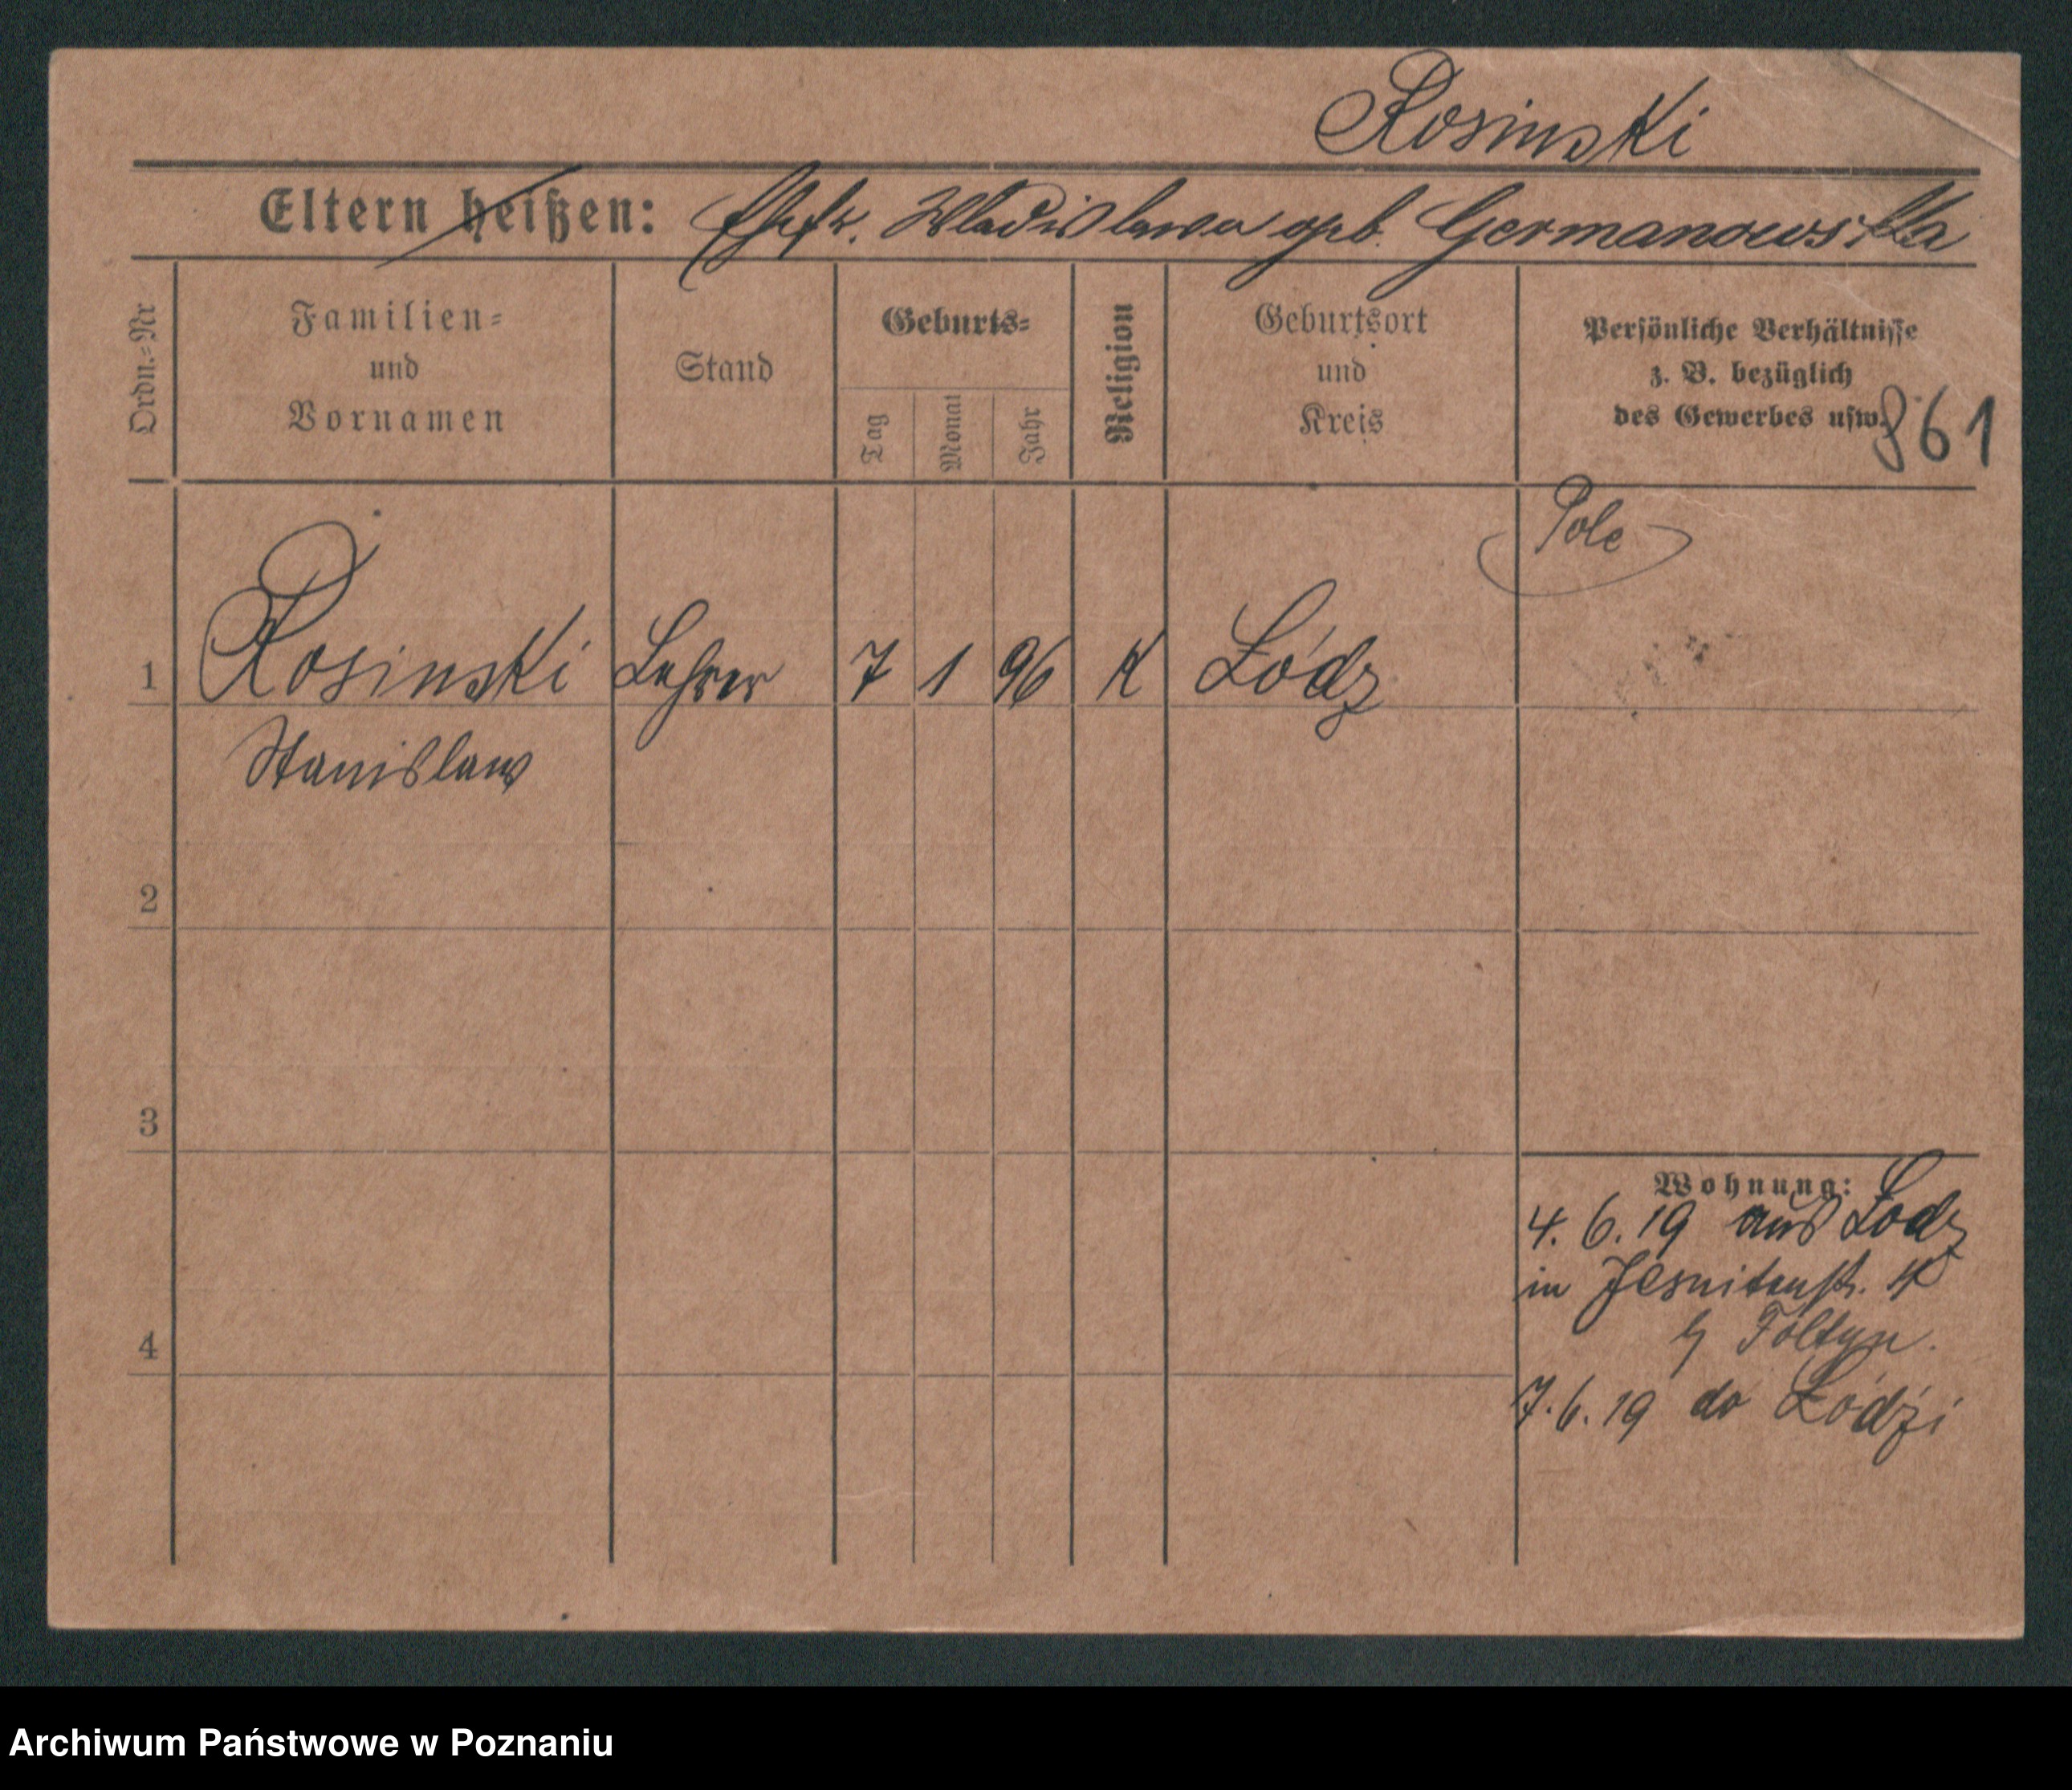 Rosinski
Eltern heißen: Ehefr. Wladislawa geb. Germanowska
Ordn.=Nr
Familien=
und
Vornamen
Stand
Geburts=
Tag
Monat
Jahr
Religion
Geburtsort
und
Kreis
Persönliche Verhältnisse
z. B. bezüglich
des Gewerbes usw.
861
Pole
1 Rosinski Lehrer 7 1 96 K Łódz
Stanislaus
2
3
Wohnung:
4. 6. 19 aus Lodz
in Jesuitenstr.
Foltyn.
4
7. 6. 19 do Łódźi
Archiwum Państwowe w Poznaniu